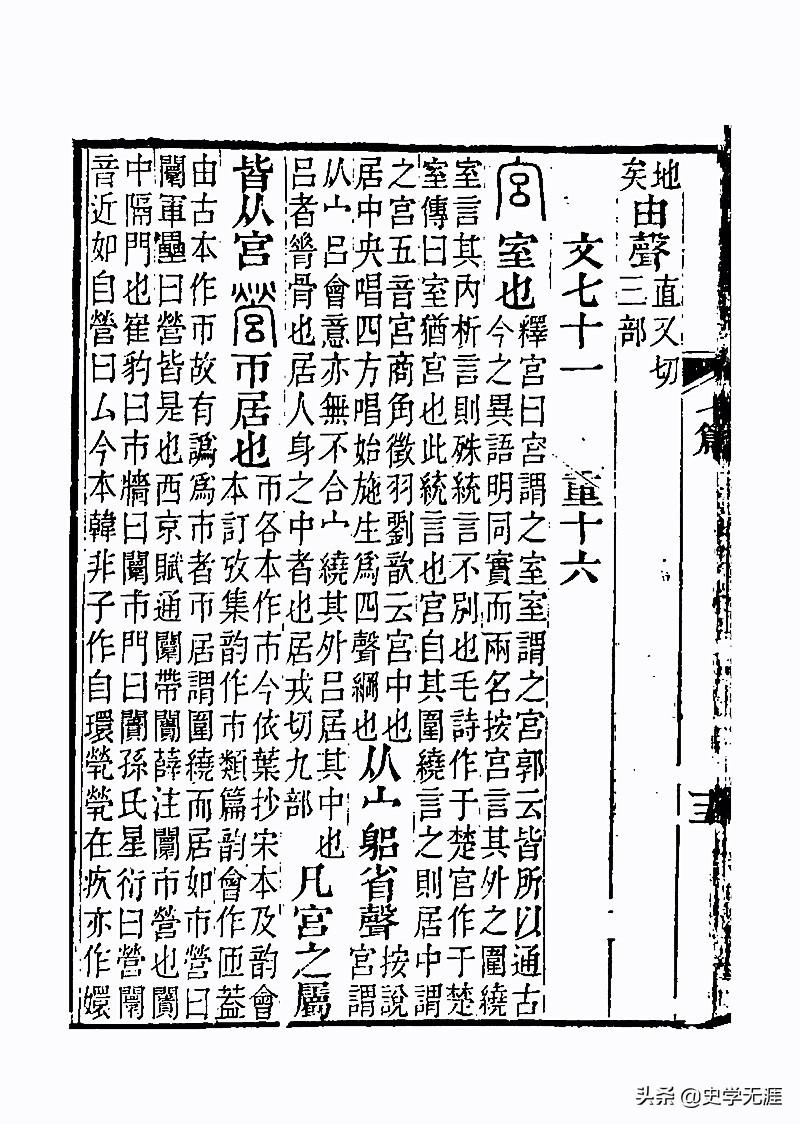 地
矣
由聲
直又切
三部
文七十一　重十六
宮室也
釋宮曰宮謂之室室謂之宮郭云皆所以通古
今之異語明同實而兩名按宮言其外之圍繞
室言其內析言則殊統言不別也毛詩作于楚宮作于楚
室傳曰室猶宮也此統言也宮自其圍繞言之則居中謂
之宮五音宮商角徵羽劉歆云宮中也
居中央唱四方唱始施生爲四聲綱也
从宀躳省聲
按說
宮謂
从宀呂會意亦無不合宀繞其外呂居其中也
呂者膂骨也居人身之中者也居戎切九部
凡宮之屬
皆从宮營帀居也
帀各本作市今依葉抄宋本及韵會
本訂攷集韵作市類篇韵會作匝葢
由古本作帀故有譌爲市者帀居謂圍繞而居如市營曰
闤軍壘曰營皆是也西京賦通闤帶闠薛注闤市營也闠
中隔門也崔豹曰市牆曰闤市門曰闠孫氏星衍曰營闤
音近如自營曰厶今本韓非子作自環煢煢在疚亦作嬛
头条 @史学无涯